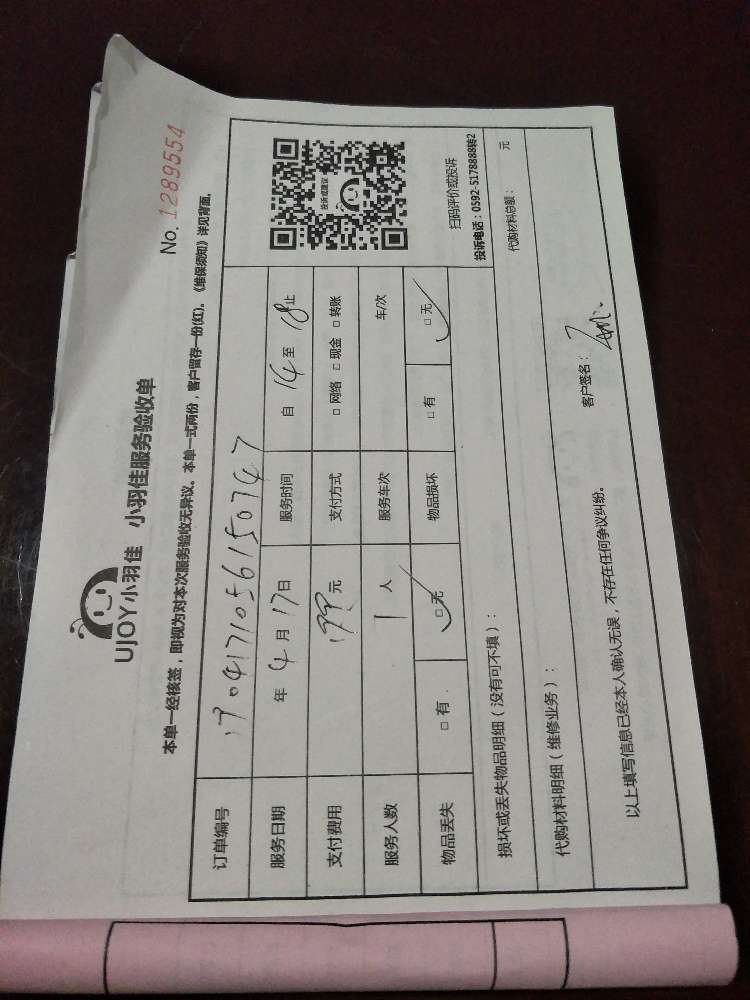 UJOY小羽佳 小羽佳服务验收单
No. 1289554
本单一经核签，即视为对本次服务验收无异议。本单一式两份，客户留存一份(红)。《维保须知》详见背面。
订单编号
服务日期 年 4 月 17 日 服务时间 自 14 至 18 止
支付费用 元 支付方式 □ 网络 □ 现金 □ 转账
服务人数 1 人 服务车次 车/次
物品丢失 □ 有 □ 无 物品损坏 □ 有 □ 无
投诉或建议
扫码评价或投诉
投诉电话：0592-5178888转2
损坏或丢失物品明细（没有可不填）：
代购材料明细（维修业务）： 代购材料总额： 元
以上填写信息已经本人确认无误，不存在任何争议纠纷。 客户签名：